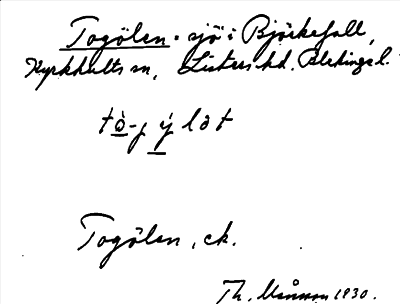 Togölen. sjö i Björkefall,
Kyrkhults sn, Listers hd. Blekinge l.
tò-j ý lət
Togölen, ck.
Th. Månsson 1930.